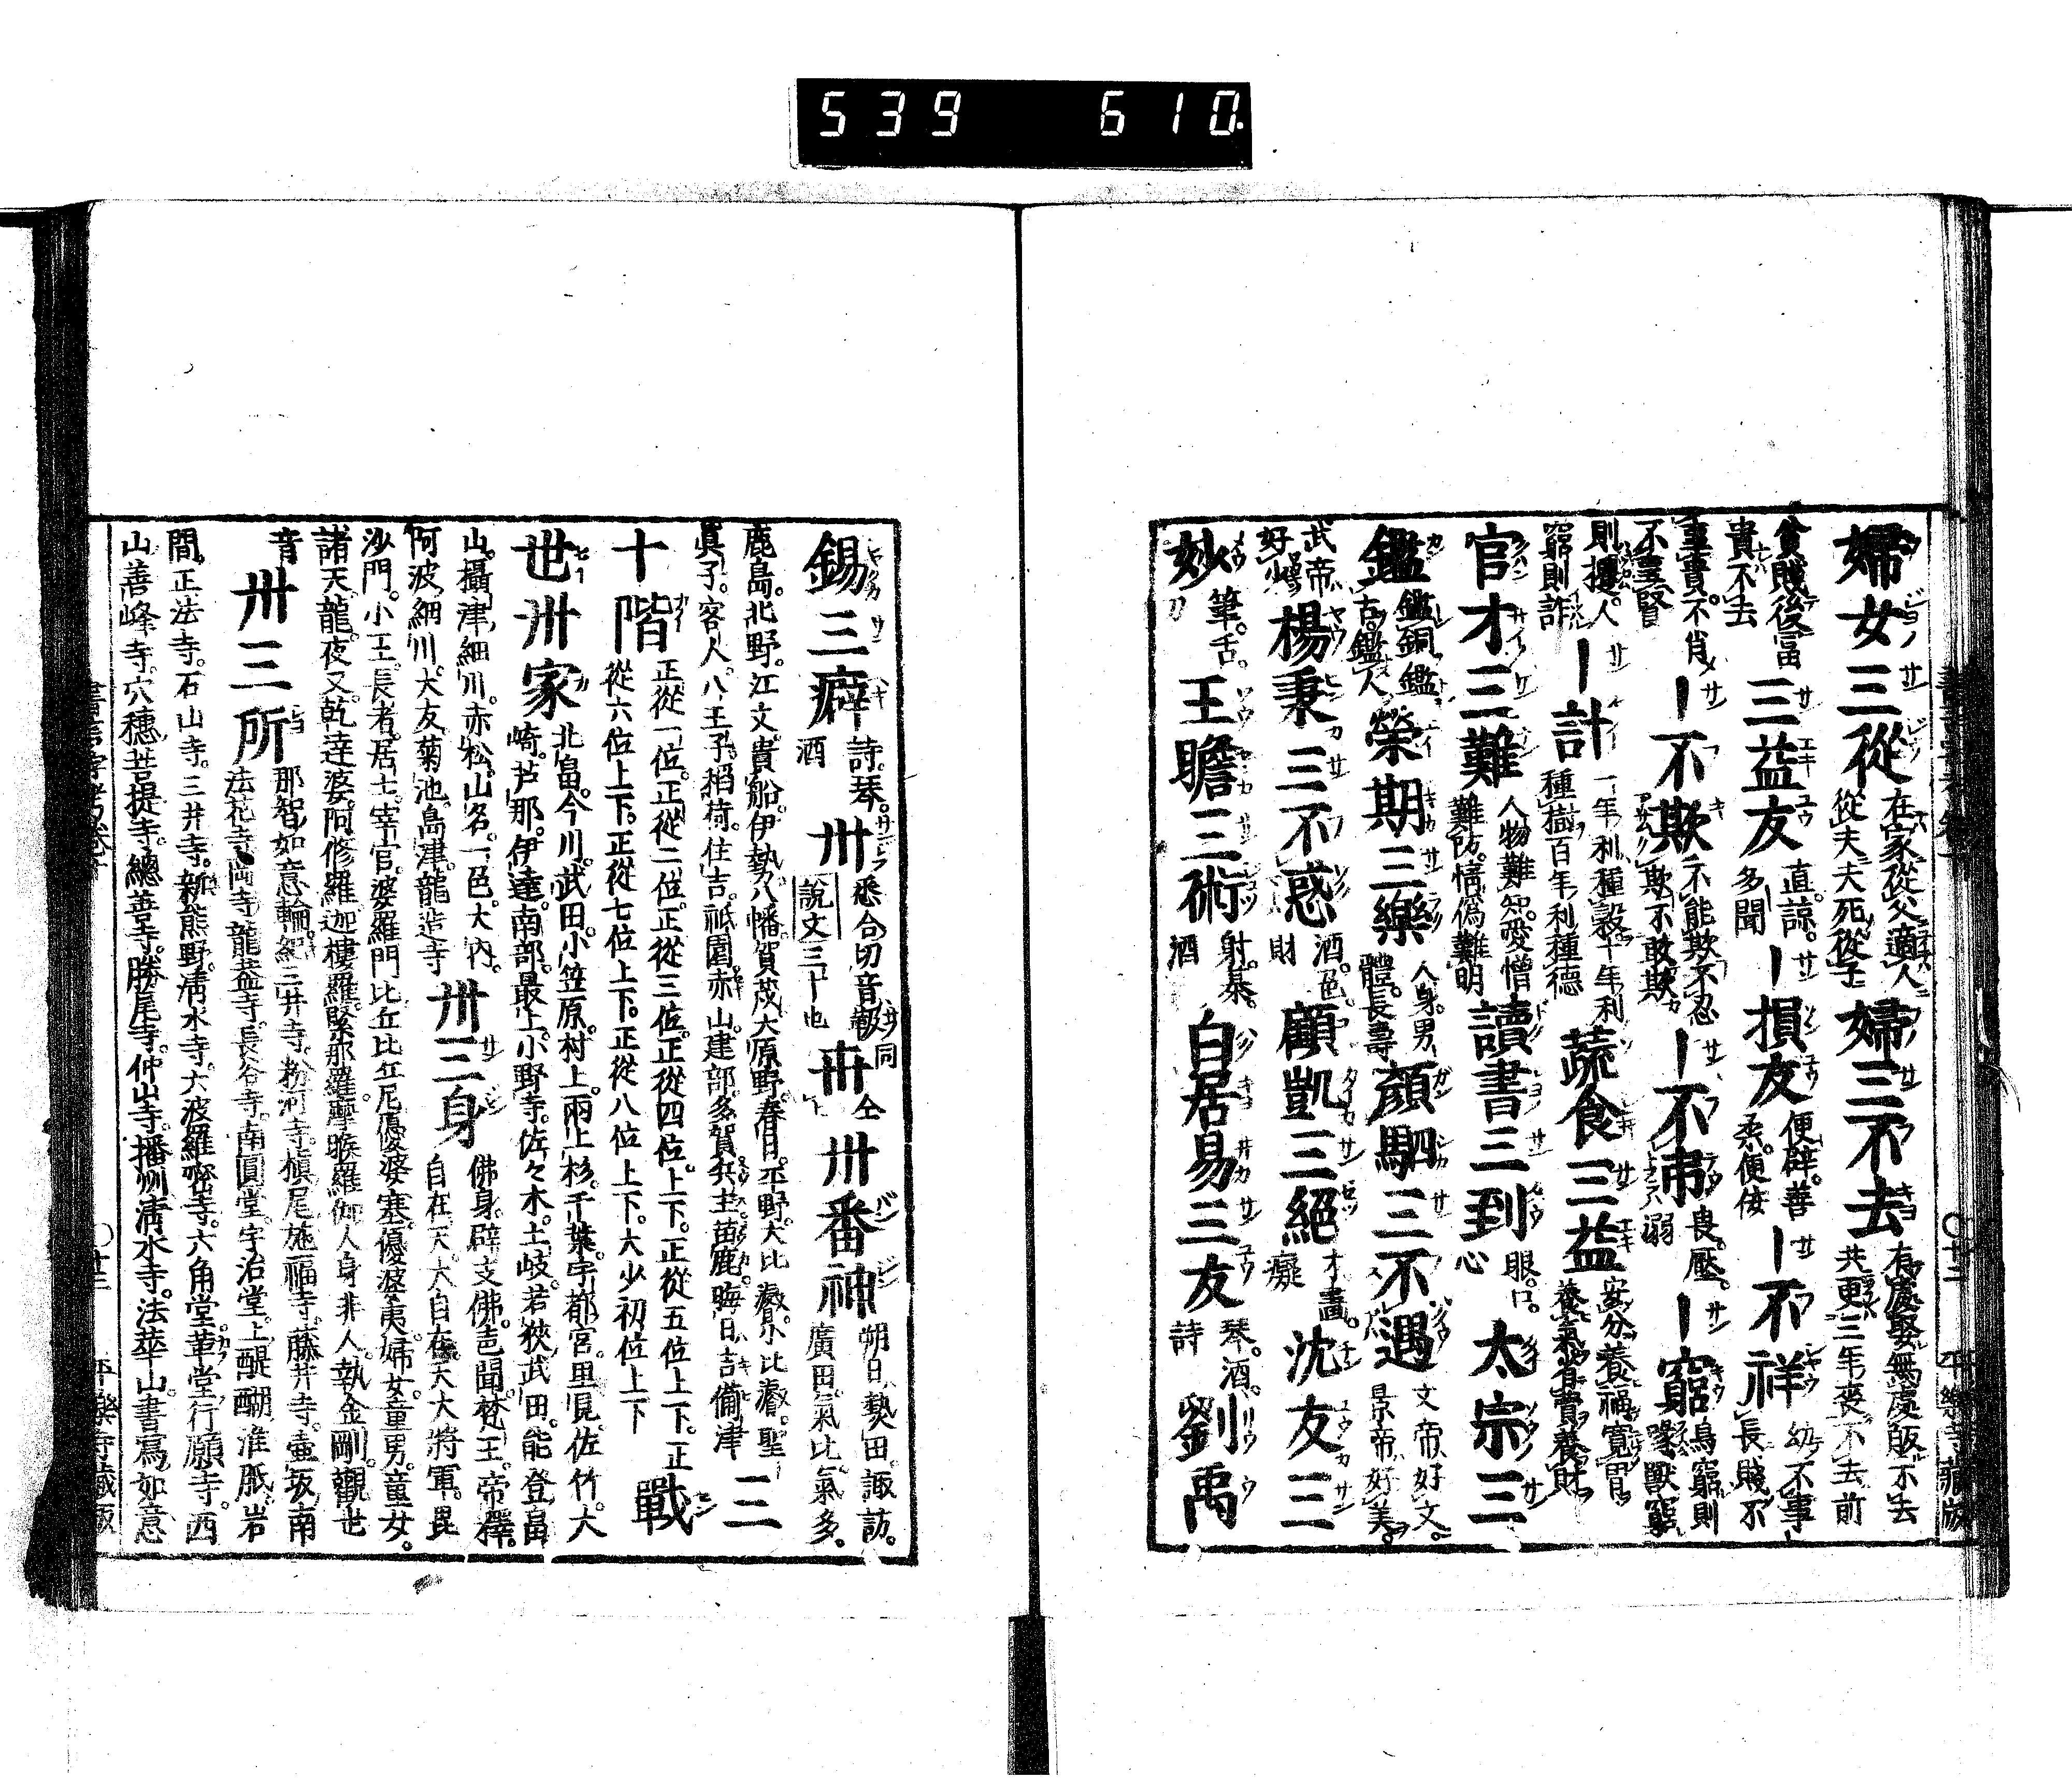 539 610
婦女三從 在家從父適人
從夫夫死從子 婦三不去 有處娶無處皈不去
共更三年喪不去前
貧賤後富
貴不去 三益友 直諒
多聞 ｜損友 便辟善
柔便佞 ｜不祥 幼不事
長賤不
事貴不肖
不事賢 ｜不欺 不能欺不忍
欺不敢欺 ｜不弔 畏壓
溺 ｜窮 鳥窮則
啄獸窮
則攫人
窮則詐 ｜計 一年利種穀十年利
種樹百年利種德 蔬食三益 安分養福寬胃
養氣省費養財
官才三難 人物難知愛憎
難防情偽難明 讀書三到 眼口
心 太宗三
鑑 鑑銅鑑
古鑑人 榮期三樂 人身男
體長壽 顔駟三不遇 文帝好文
景帝好美
武帝
好少 楊秉三不惑 酒色
財 顧凱三絕 才畫
癡 沈友三
妙 筆舌
刀 王瞻三術 射棊
酒 白居易三友 琴酒
詩 劉禹
錫三癖 詩琴
酒 卅 悉合切音報同
說文三十也 卋 仝 卅番神 朔日熱田諏訪
廣田氣比氣多
鹿島北野江文貴船伊勢八幡賀茂大原野春日平野大比叡小比叡聖
眞子客人八王子稻荷住吉祇園赤山建部多賀兵主苗鹿晦日吉備津 三
十階 正從一位正從二位正從三位正從四位上下正從五位上下正
從六位上下正從七位上下正從八位上下大少初位上下 戰
世卅家 北畠今川武田小笠原村上兩上杉千葉宇都宮里見佐竹大
崎芦那伊達南部最上小野寺佐々木土岐若狹武田能登畠
山攝津細川赤松山名一色大內
阿波細川大友菊池島津龍造寺 卅三身 佛身辟支佛聲聞梵王帝釋
自在天大自在天大將軍毘
沙門小王長者居士宰官婆羅門比丘比丘尼優婆塞優婆夷婦女童男童女
諸天龍夜叉乾達婆阿修羅迦樓羅緊那羅摩睺羅伽人身非人執金剛觀世
音 卅三所 那智如意輪紀三井寺粉河寺槙尾施福寺藤井寺壷坂南
法花寺岡寺龍蓋寺長谷寺南圓堂宇治堂上醍醐准胝岩
間正法寺石山寺三井寺新熊野淸水寺六波羅密寺六角堂革堂行願寺西
山善峰寺穴穗菩提寺總善寺勝尾寺仲山寺播州淸水寺法華山書寫如意
平樂寺藏版